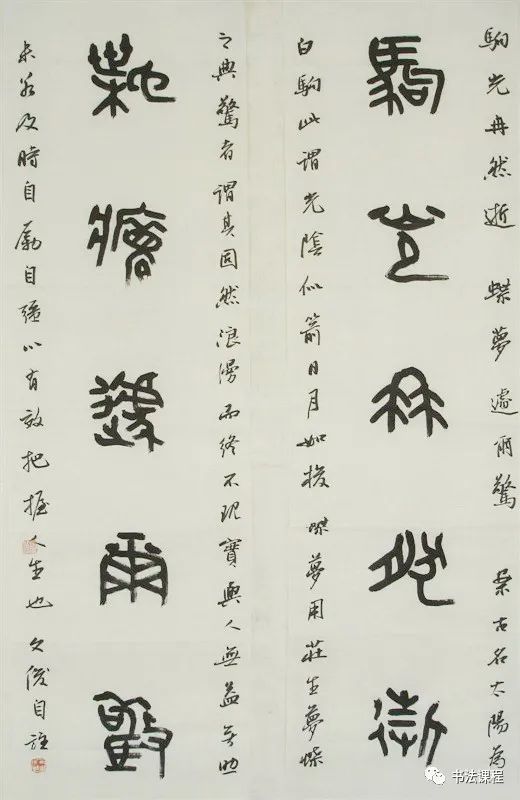 駒光冉然逝 蝶夢遽爾驚 案古名太陽為
駒光冉然逝
白駒此謂光陰似箭日月如梭 蝶夢用莊生夢蝶
之典驚者謂其固然浪漫而終不現實與人無益無助
蝶夢遽爾驚
未若及時自勵自強以有效把握人生也 文俊自註
书法课程